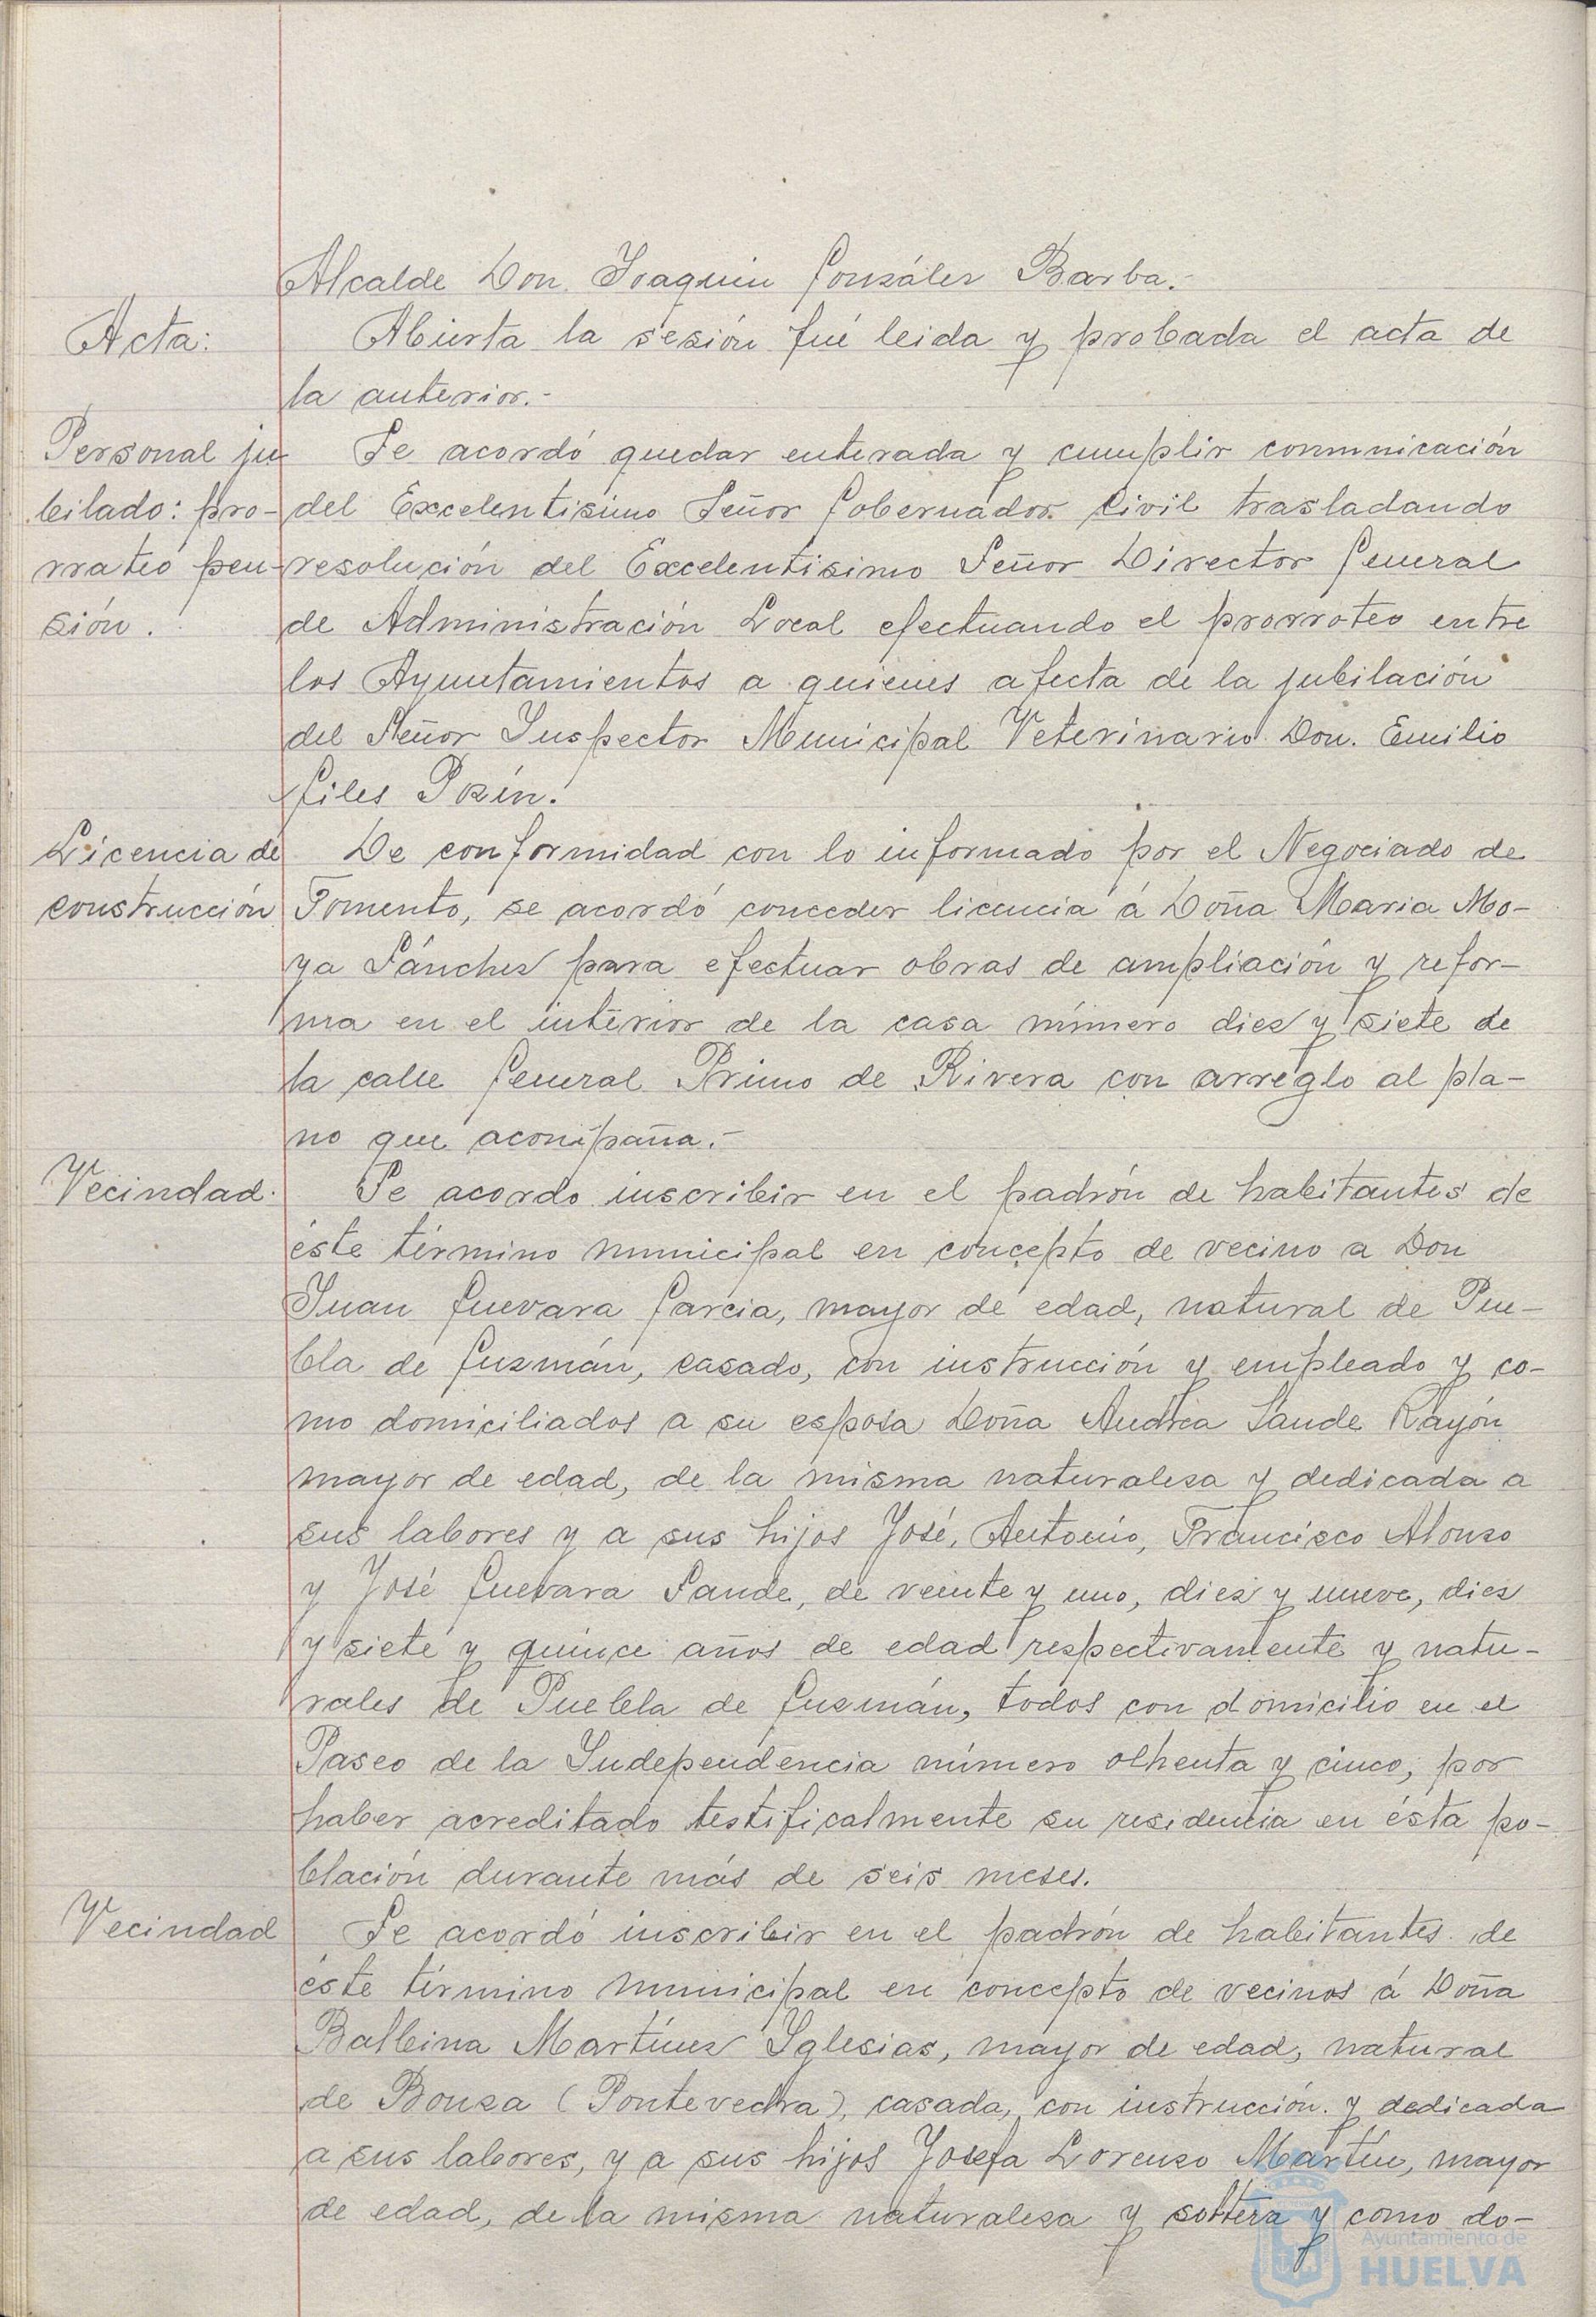 Alcalde Don Joaquin Gonzáler Barba.-
Acta:
Abierta la sesión fué leida y probada el acta de
la anterior.-
Personal ju
bilado: pro-
rrateo pen-
sión.
Se acordó quedar enterada y cumplir comunicación
del Excelentisimo Señor Gobernador Civil trasladando
resolución del Excelentisimo Señor Director General
de Administración Local efectuando el prorroteo entre
los Ayuntamientos a quienes afecta de la jubilación
del Señor Inspector Municipal Veterinario Don. Emilio
Giles
Licencia de
construcción
De conformidad con lo informado por el Negociado de
Fomento, se acordó conceder licencia á Doña Maria Mo-
ya Sánchez para efectuar obras de ampliación y refor-
ma en el interior de la casa número diez y siete de
la calle General Primo de Rivera con arreglo al pla-
no que acompaña.-
Vecindad.
Se acordo inscribir en el padrón de habitantes de
éste término municipal en concepto de vecino a Don
Juan Guevara Garcia, mayor de edad, natural de Pue-
bla de Guzmán, casado, con instrucción y empleado y co-
mo domiciliados a su esposa Doña Andrea Sande Rayón
mayor de edad, de la misma naturaleza y dedicada a
sus labores y a sus hijos José, Antonio, Francisco Alonso
y José Guevara Sande, de veinte y uno, diez y nueve, diez
y siete y quince años de edad respectivamente y natu-
rales de Puebla de Guzmán, todos con domicilio en el
Paseo de la Independencia número ochenta y cinco, por
haber acreditado testificalmente su residencia en ésta po-
blación durante más de seis meses.
Vecindad
Se acordó inscribir en el padrón de habitantes de
éste término municipal en concepto de vecinos á Doña
Balbina Martínez Iglesias, mayor de edad, natural
de Bouza (Pontevedra), casada, con instrucción y dedicada
a sus labores, y a sus hijos Josefa Lorenzo Martín, mayor
de edad, de la misma naturaleza y soltera y como do-
Ayuntamiento de
HUELVA